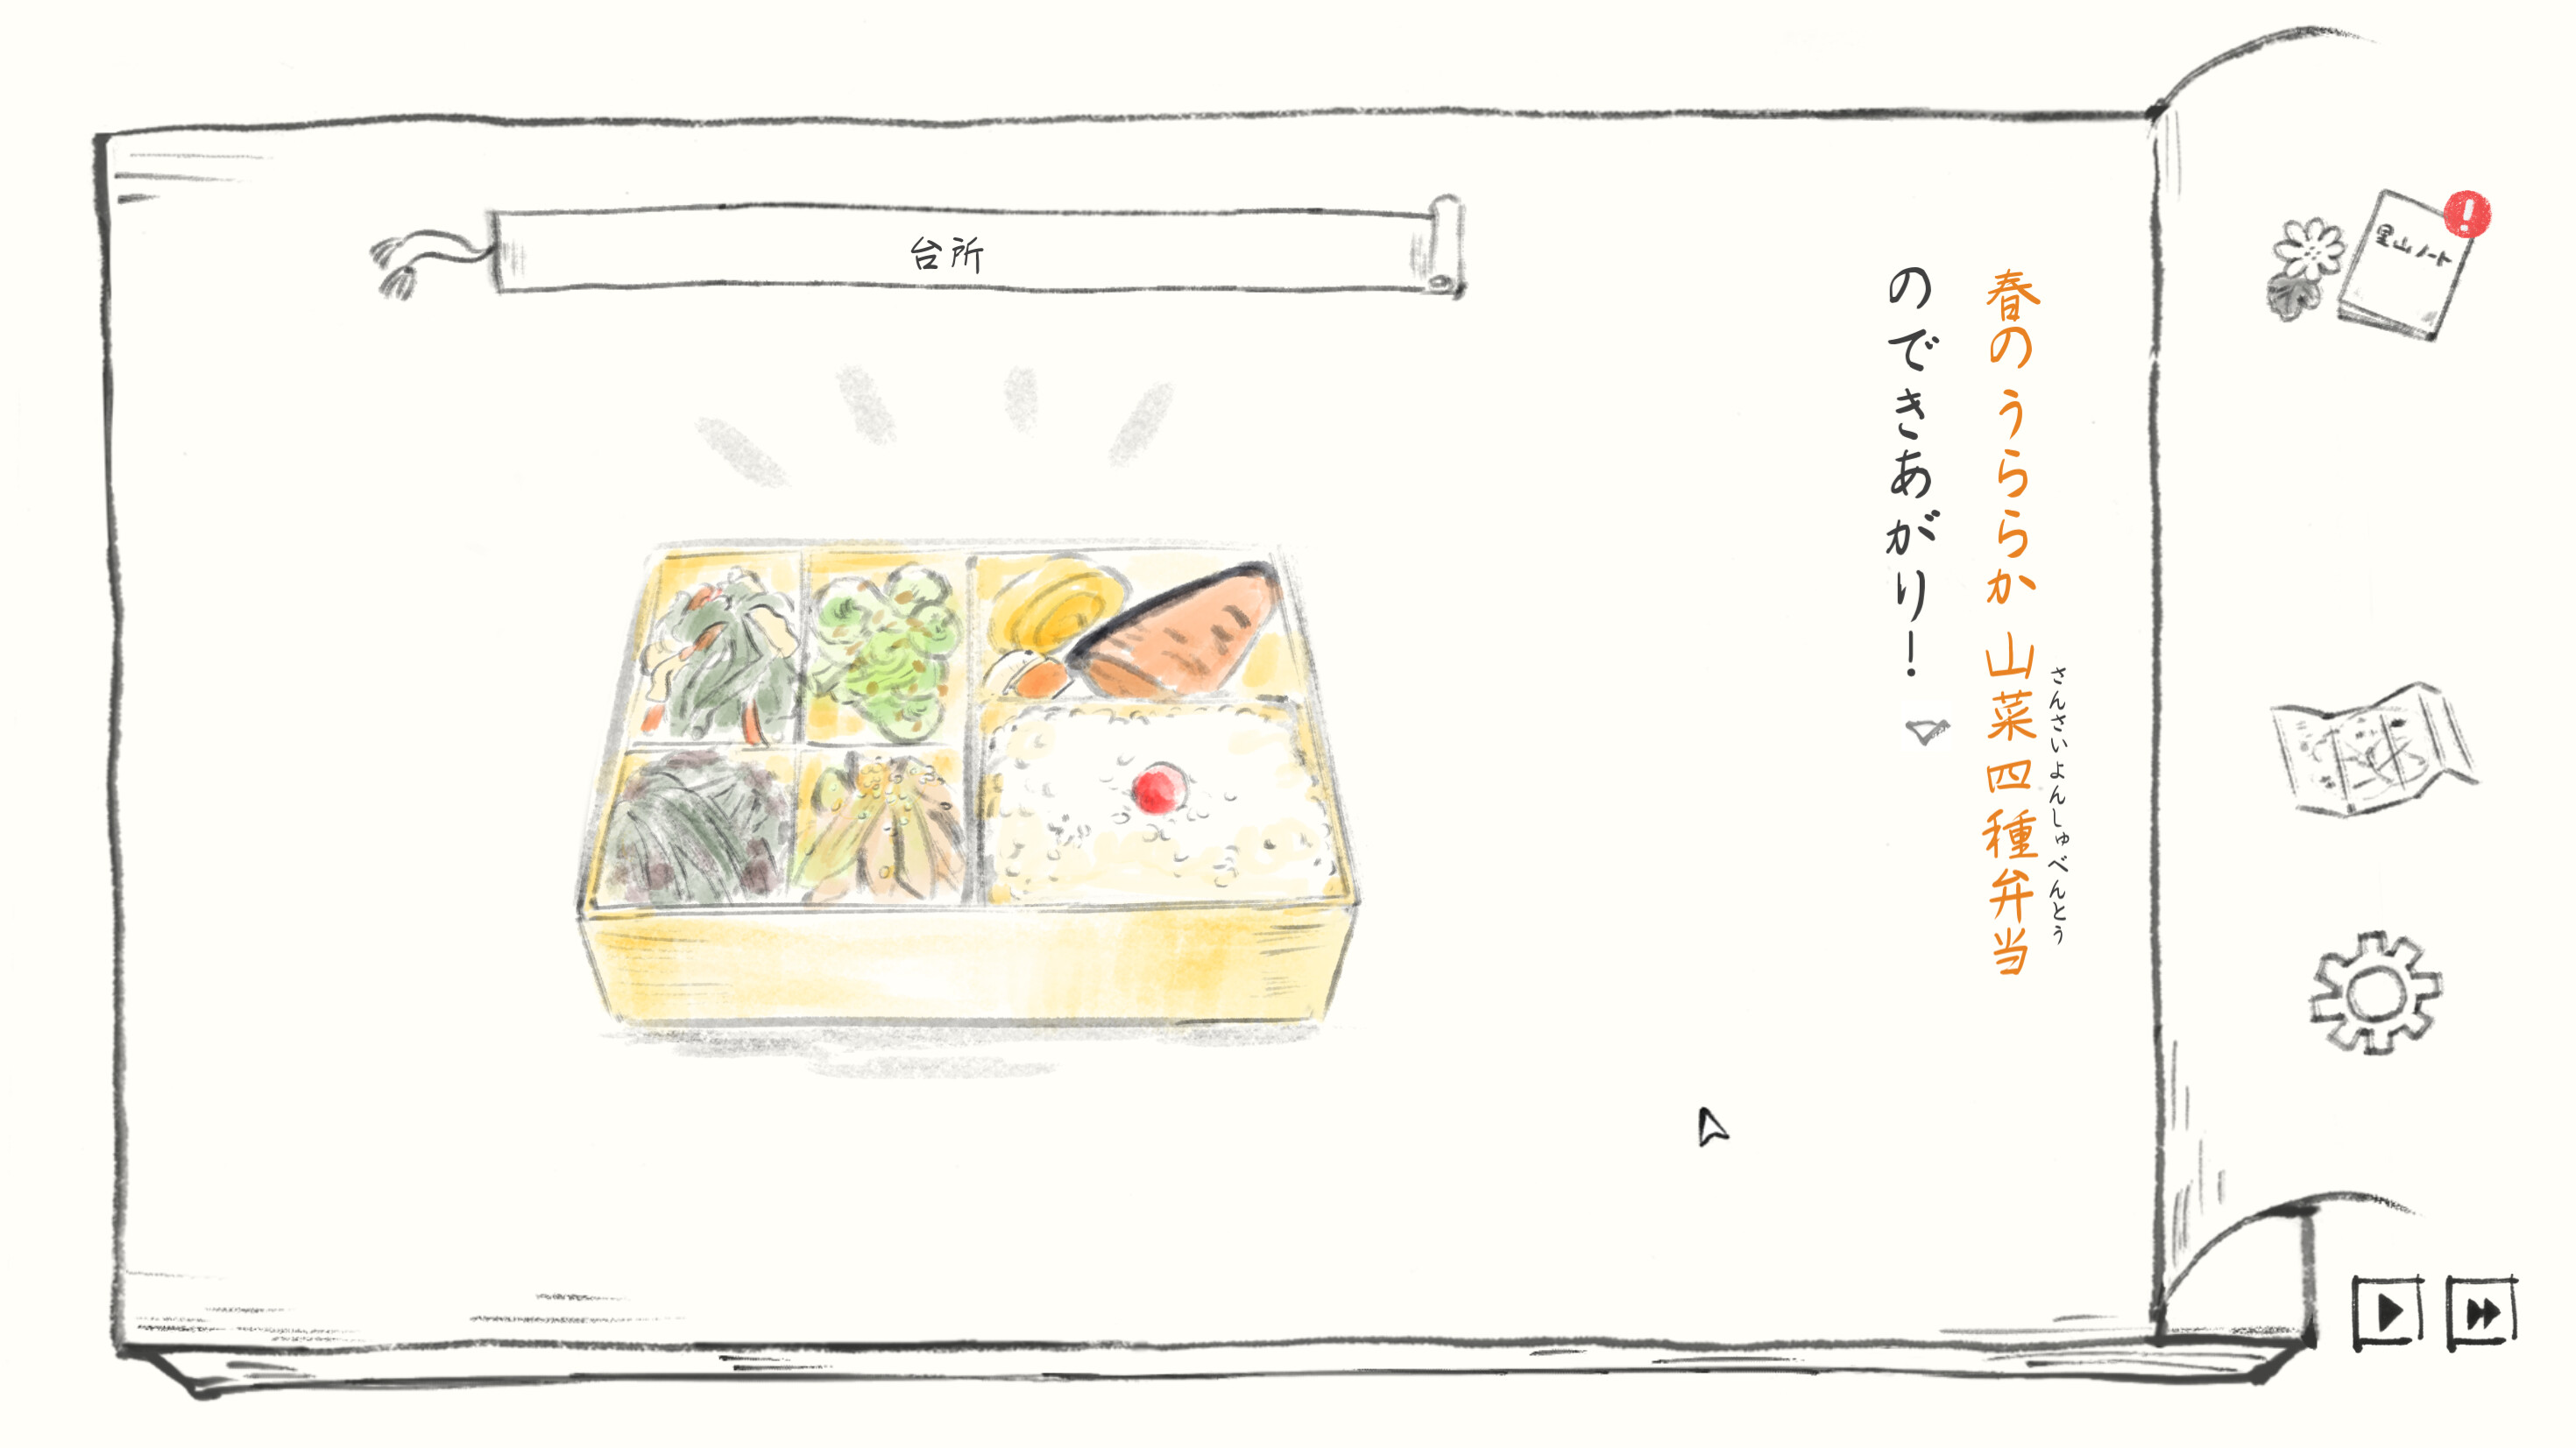 台所
春のうららか 山菜四種弁当
さんさいよんしゅべんとう
のできあがり！
里山ノート